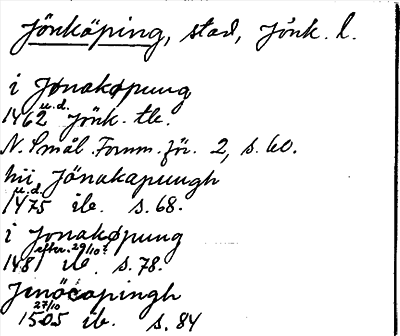 Jönköping, stad, Jönk. l.
i Jønakøpung
1462 u.d. Jönk. tb.
N. Smål. Fornm. för. 2, s. 60.
hii Jönakapungh
1475 u.d. ib. s. 68.
i Jonakøpung
1481 efter 29/10? ib. s. 78.
Jenöcopingh
1505 27/10 ib. s. 84